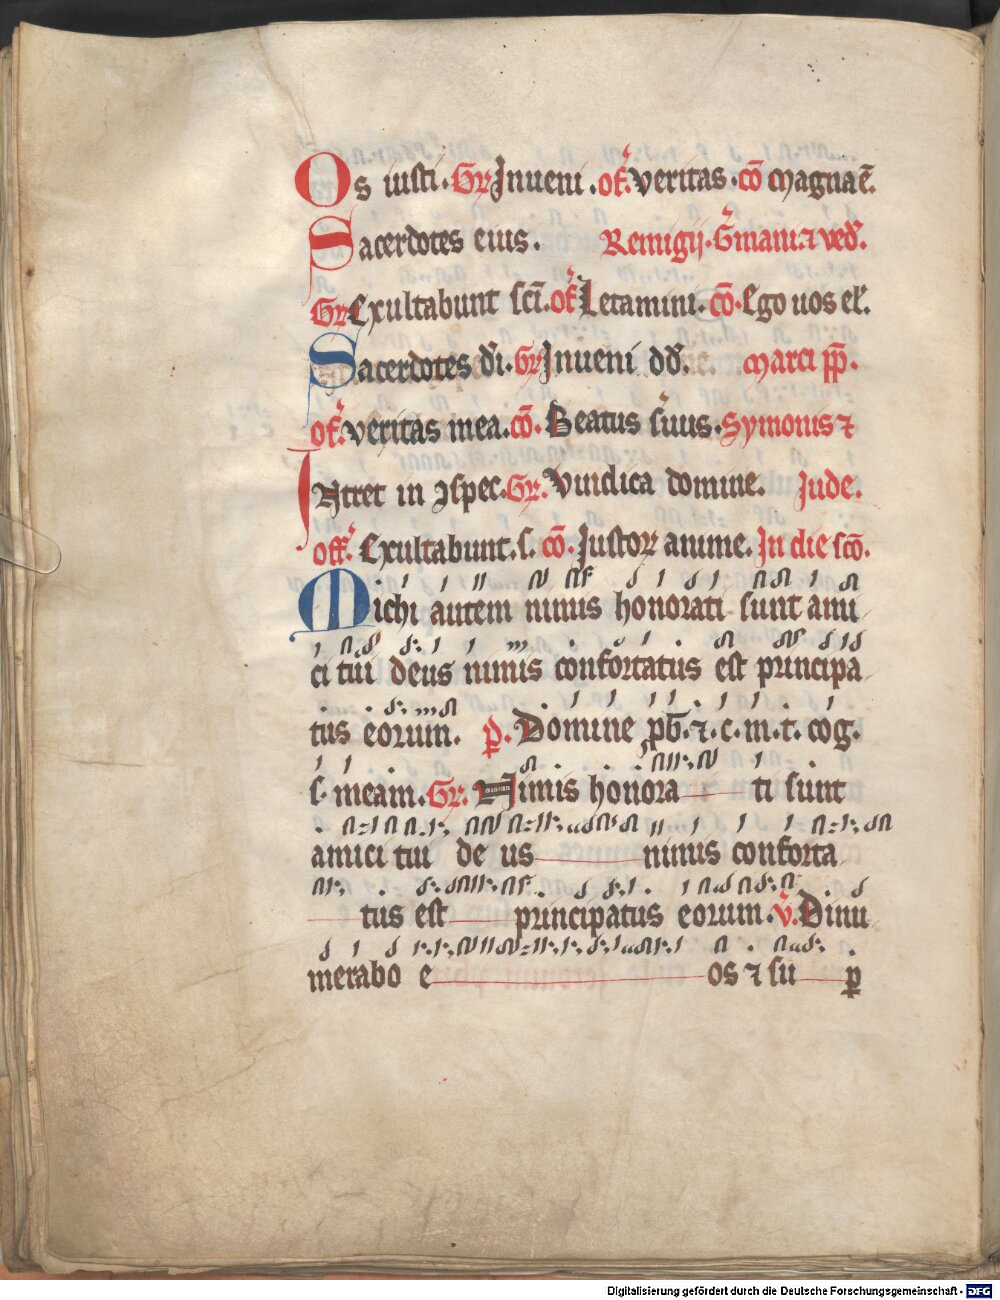 Os iusti. Gr Inueni. of. veritas. cō Magna ē.
Sacerdotes eius. Remigij. Gmani. ⁊ ved.
Gr Exultabunt sci. of Letamini. cō. Ego uos el.
Sacerdotes di. Gr Inueni dd. Marci pp.
of. veritas mea. cō. Beatus suus. Symonis ⁊
Intret in ꝯspec. Gr. Vindica domine. Jude.
off. Exultabunt. s. cō. Iustoꝝ anime. In die scō.
Michi autem nimis honorati sunt ami
ci tui deus nimis confortatus est principa
tus eorum. p. Domine pb. ⁊. c. m. t. cog.
s. meam. Gr. Nimis honora ti sunt
amici tui de us nimis conforta
tus est principatus eorum. v. Dinu
merabo e os ⁊ su p
Digitalisierung gefördert durch die Deutsche Forschungsgemeinschaft - DFG